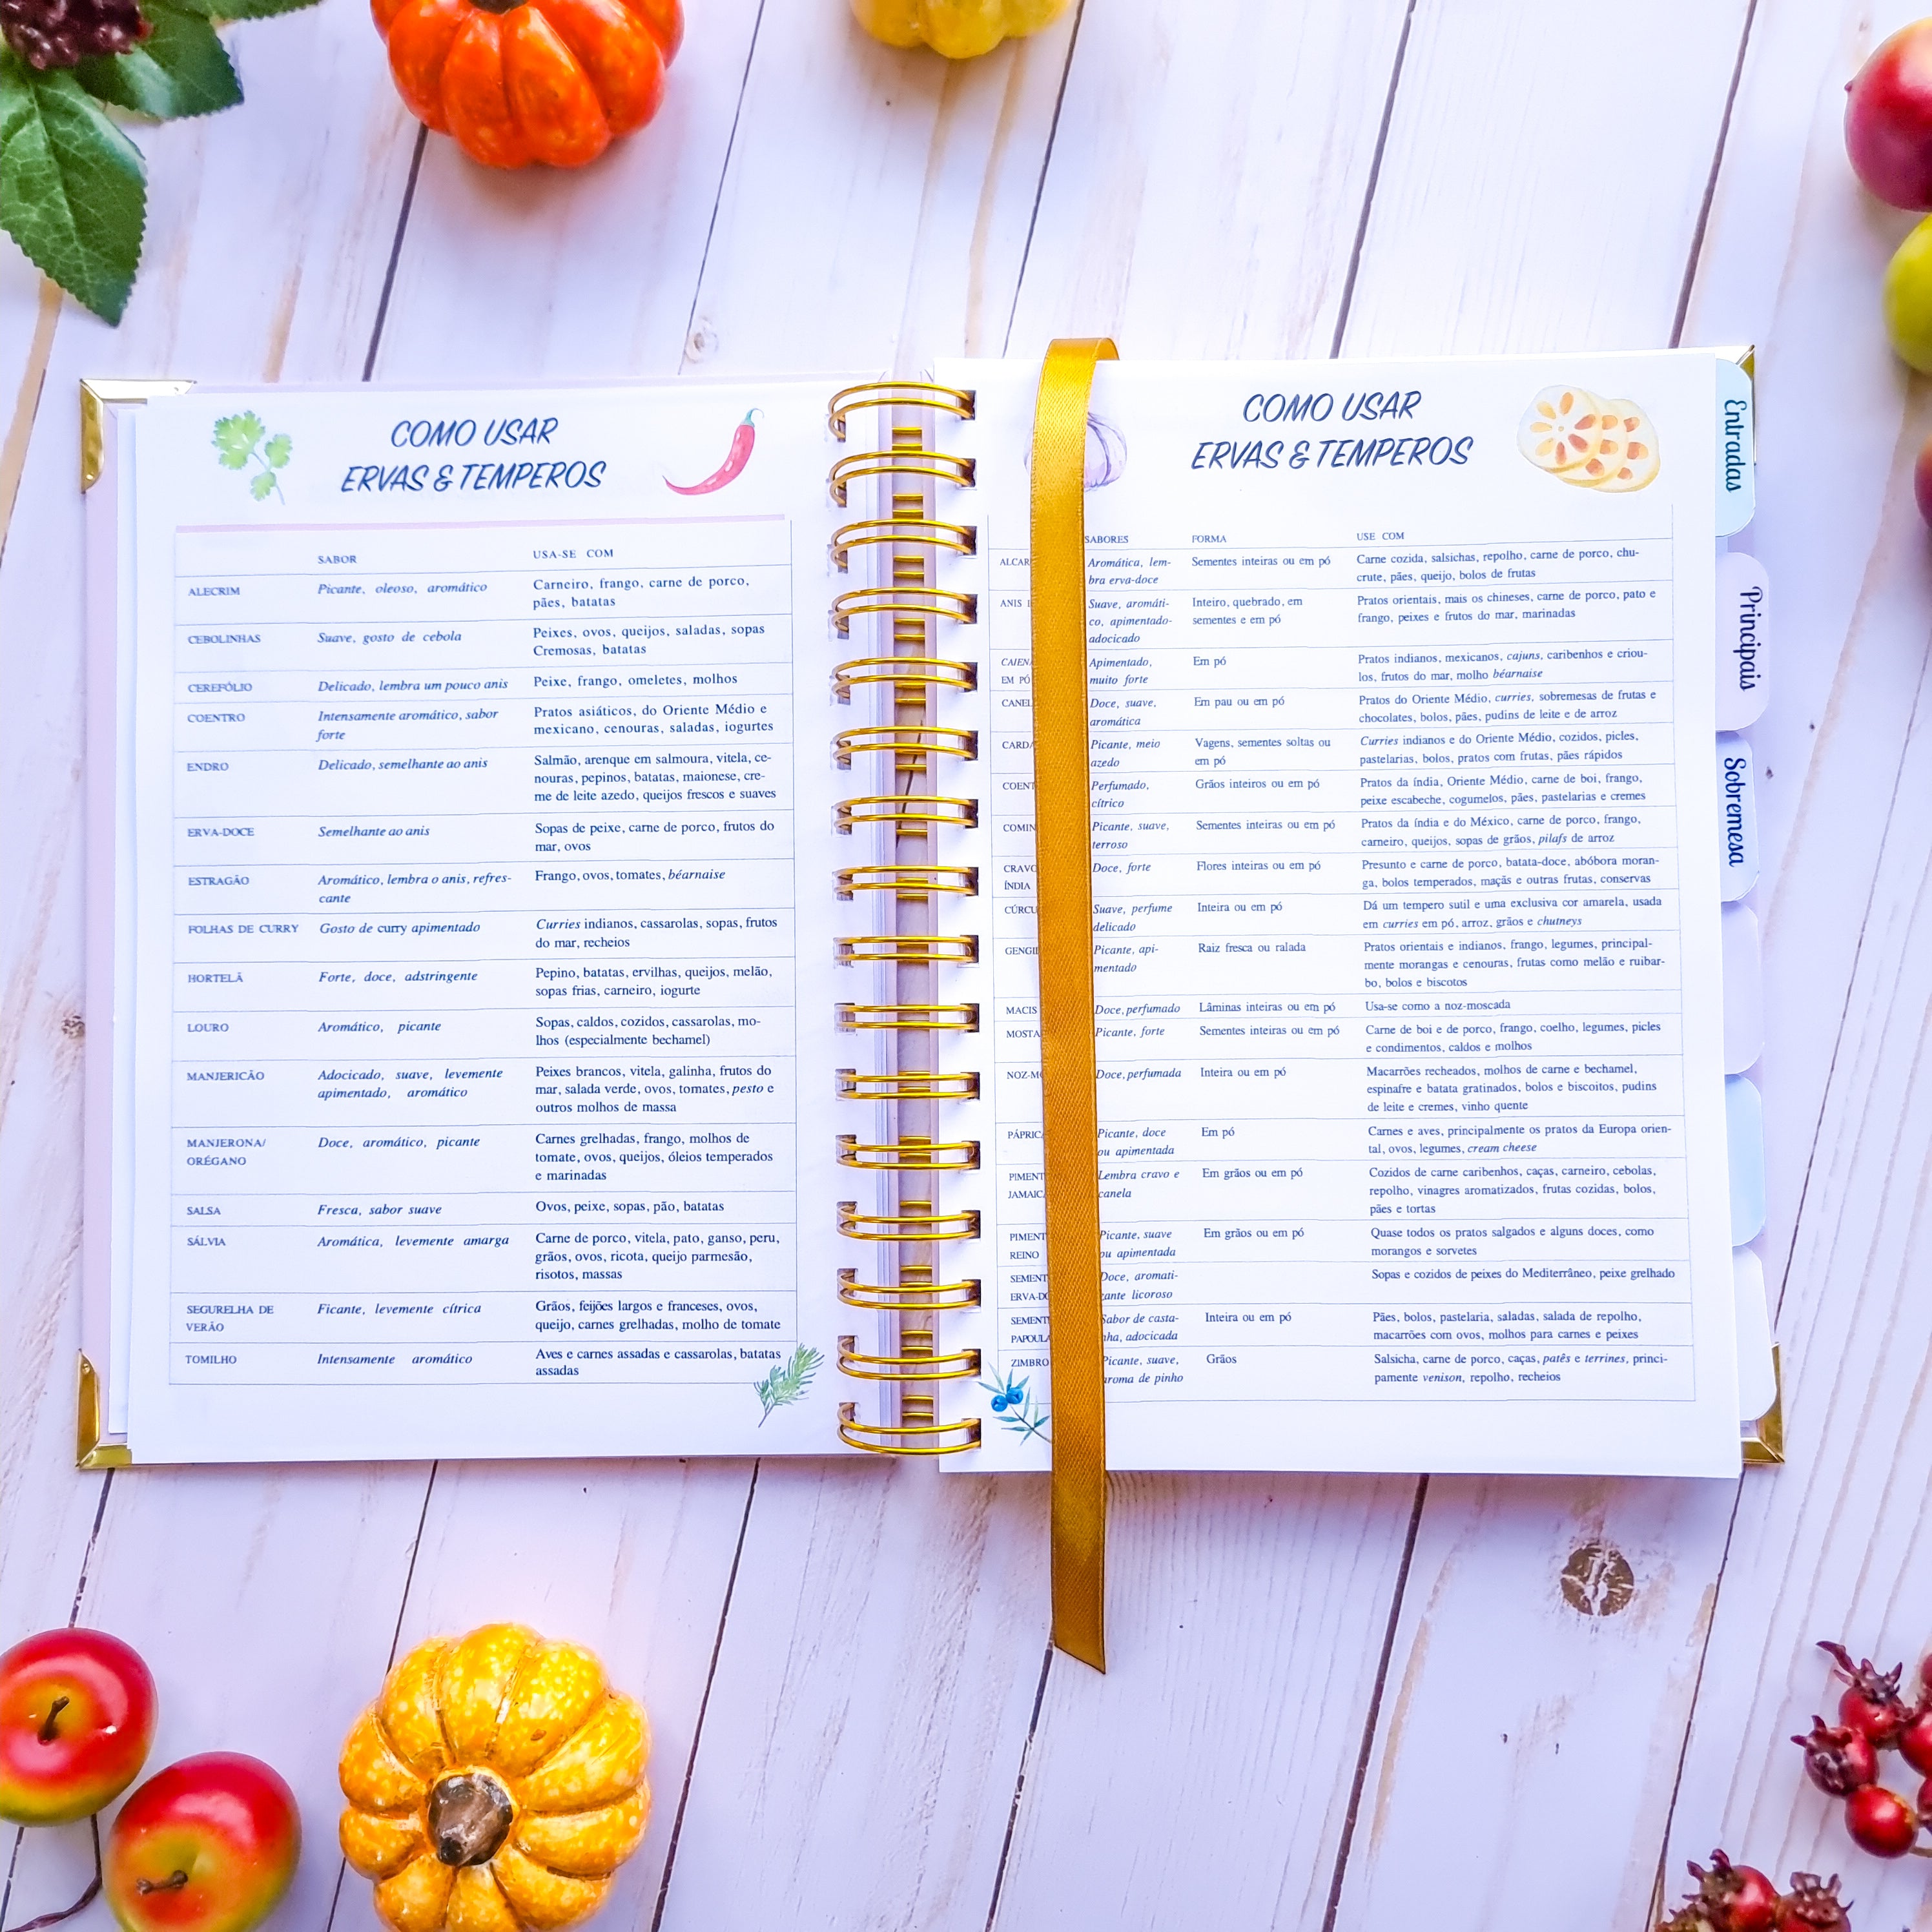 COMO USAR
ERVAS & TEMPEROS
SABOR USA-SE COM
ALECRIM Picante, oleoso, aromático Carneiro, frango, carne de porco,
pães, batatas
CEBOLINHAS Suave, gosto de cebola Peixes, ovos, queijos, saladas, sopas
Cremosas, batatas
CEREFÓLIO Delicado, lembra um pouco anis Peixe, frango, omeletes, molhos
COENTRO Intensamente aromático, sabor Pratos asiáticos, do Oriente Médio e
forte mexicano, cenouras, saladas, iogurtes
ENDRO Delicado, semelhante ao anis Salmão, arenque em salmoura, vitela, ce-
nouras, pepinos, batatas, maionese, cre-
me de leite azedo, queijos frescos e suaves
ERVA-DOCE Semelhante ao anis Sopas de peixe, carne de porco, frutos do
mar, ovos
ESTRAGÃO Aromático, lembra o anis, refres- Frango, ovos, tomates, béarnaise
cante
FOLHAS DE CURRY Gosto de curry apimentado Curries indianos, cassarolas, sopas, frutos
do mar, recheios
HORTELÃ Forte, doce, adstringente Pepino, batatas, ervilhas, queijos, melão,
sopas frias, carneiro, iogurte
LOURO Aromático, picante Sopas, caldos, cozidos, cassarolas, mo-
lhos (especialmente bechamel)
MANJERICÃO Adocicado, suave, levemente Peixes brancos, vitela, galinha, frutos do
apimentado, aromático mar, salada verde, ovos, tomates, pesto e
outros molhos de massa
MANJERONA/ Doce, aromático, picante Carnes grelhadas, frango, molhos de
ORÉGANO tomate, ovos, queijos, óleios temperados
e marinadas
SALSA Fresca, sabor suave Ovos, peixe, sopas, pão, batatas
SÁLVIA Aromática, levemente amarga Carne de porco, vitela, pato, ganso, peru,
grãos, ovos, ricota, queijo parmesão,
risotos, massas
SEGURELHA DE Ficante, levemente cítrica Grãos, feijões largos e franceses, ovos,
VERÃO queijo, carnes grelhadas, molho de tomate
TOMILHO Intensamente aromático Aves e carnes assadas e cassarolas, batatas
assadas
COMO USAR
ERVAS & TEMPEROS
SABORES FORMA USE COM
ALCAR Aromática, lem- Sementes inteiras ou em pó Carne cozida, salsichas, repolho, carne de porco, chu-
bra erva-doce crute, pães, queijo, bolos de frutas
ANIS Suave, aromáti- Inteiro, quebrado, em Pratos orientais, mais os chineses, carne de porco, pato e
co, apimentado- sementes e em pó frango, peixes e frutos do mar, marinadas
adocicado
CAIEN Apimentado, Em pó Pratos indianos, mexicanos, cajuns, caribenhos e criou-
EM PÓ muito forte los, frutos do mar, molho béarnaise
CANEL Doce, suave, Em pau ou em pó Pratos do Oriente Médio, curries, sobremesas de frutas e
aromática chocolates, bolos, pães, pudins de leite e de arroz
CARD Picante, meio Vagens, sementes soltas ou Curries indianos e do Oriente Médio, cozidos, picles,
azedo em pó pastelarias, bolos, pratos com frutas, pães rápidos
COENT Perfumado, Grãos inteiros ou em pó Pratos da índia, Oriente Médio, carne de boi, frango,
cítrico peixe escabeche, cogumelos, pães, pastelarias e cremes
COMIN Picante, suave, Sementes inteiras ou em pó Pratos da índia e do México, carne de porco, frango,
terroso carneiro, queijos, sopas de grãos, pilafs de arroz
CRAVO Doce, forte Flores inteiras ou em pó Presunto e carne de porco, batata-doce, abóbora moran-
ÍNDIA ga, bolos temperados, maçãs e outras frutas, conservas
CÚRCU Suave, perfume Inteira ou em pó Dá um tempero sutil e uma exclusiva cor amarela, usada
delicado em curries em pó, arroz, grãos e chutneys
GENGI Picante, api- Raiz fresca ou ralada Pratos orientais e indianos, frango, legumes, principal-
mentado mente morangas e cenouras, frutas como melão e ruibar-
bo, bolos e biscotos
MACIS Doce, perfumado Lâminas inteiras ou em pó Usa-se como a noz-moscada
MOSTA Picante, forte Sementes inteiras ou em pó Carne de boi e de porco, frango, coelho, legumes, picles
e condimentos, caldos e molhos
NOZ-M Doce, perfumada Inteira ou em pó Macarrões recheados, molhos de carne e bechamel,
espinafre e batata gratinados, bolos e biscoitos, pudins
de leite e cremes, vinho quente
PÁPRIC Picante, doce Em pó Carnes e aves, principalmente os pratos da Europa orien-
ou apimentada tal, ovos, legumes, cream cheese
PIMENT Lembra cravo e Em grãos ou em pó Cozidos de carne caribenhos, caças, carneiro, cebolas,
JAMAIC canela repolho, vinagres aromatizados, frutas cozidas, bolos,
pães e tortas
PIMENT Picante, suave Em grãos ou em pó Quase todos os pratos salgados e alguns doces, como
REINO ou apimentada morangos e sorvetes
SEMENT Doce, aromati- Sopas e cozidos de peixes do Mediterrâneo, peixe grelhado
ERVA-DO zante licoroso
SEMENT Sabor de casta- Inteira ou em pó Pães, bolos, pastelaria, saladas, salada de repolho,
PAPOULA nha, adocicada macarrões com ovos, molhos para carnes e peixes
ZIMBRO Picante, suave, Grãos Salsicha, carne de porco, caças, patês e terrines, princi-
aroma de pinho pamente venison, repolho, recheios
Entradas
Principais
Sobremesa